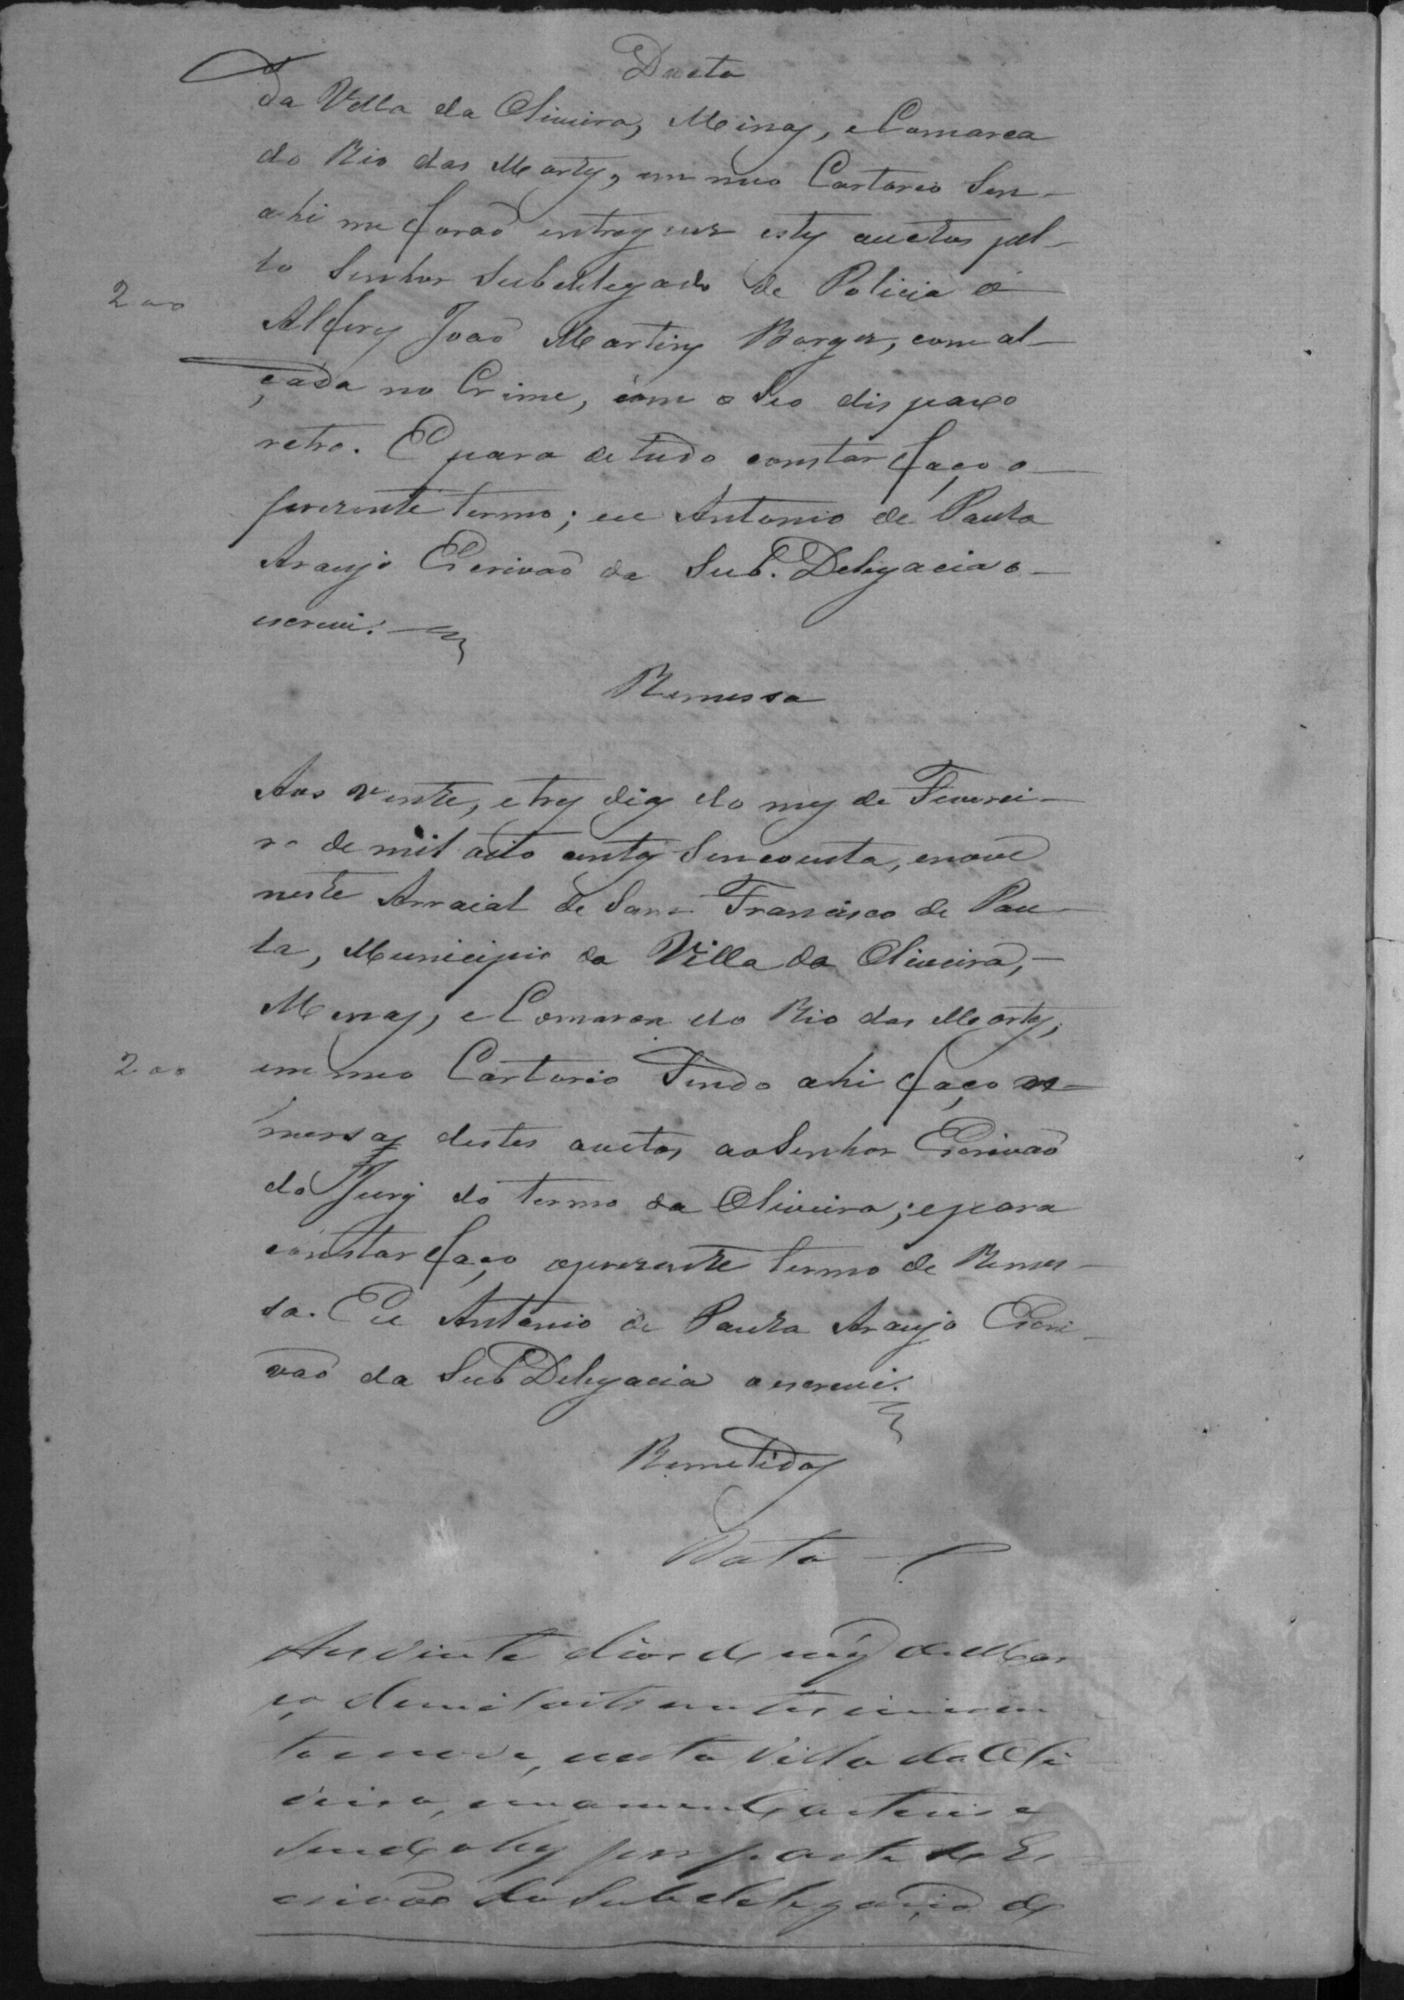 Ducta
da Villa da Oliveira, Minas, e Comarca
do Rio das Mortes, em meo Cartorio Sen-
ahi me forão entregues estes auctos pel-
lo Senhor Subdelegado de Policia o
200
Alferes João Martins Borges, com al-
çada no Crime, com o Seo dispaxo
retro. E para de tudo constar faço o
prezente termo; eu Antonio de Paula
Araujo Escrivão da Sub. Delegacia o
escrevi.
Remessa
Aos vente, e tres dias do mes de Feverei-
ro de mil oito centos Sencoenta, e nove
neste Arraial de Sam Francisco de Pau-
la, Municipio da Villa da Oliveira,
Minas, e Comarca do Rio das Mortes,
200
em meo Cartorio Sendo ahi faço re-
messas destes auctos ao Senhor Escrivão
do Jury do termo da Oliveira; e para
constar faço o prezente termo de Remes-
sa. Eu Antonio de Paula Araujo Escri-
vão da Sub Delegacia o escrevi.
Remetidos
Data
Aos vinte dias do mes de Mar
ço de mil oito centos cincoen
ta e nove, nesta Villa da Oli
veira, em meu Cartorio e
Sendo ahy por parte do Es
crivão da Subdelegacia de